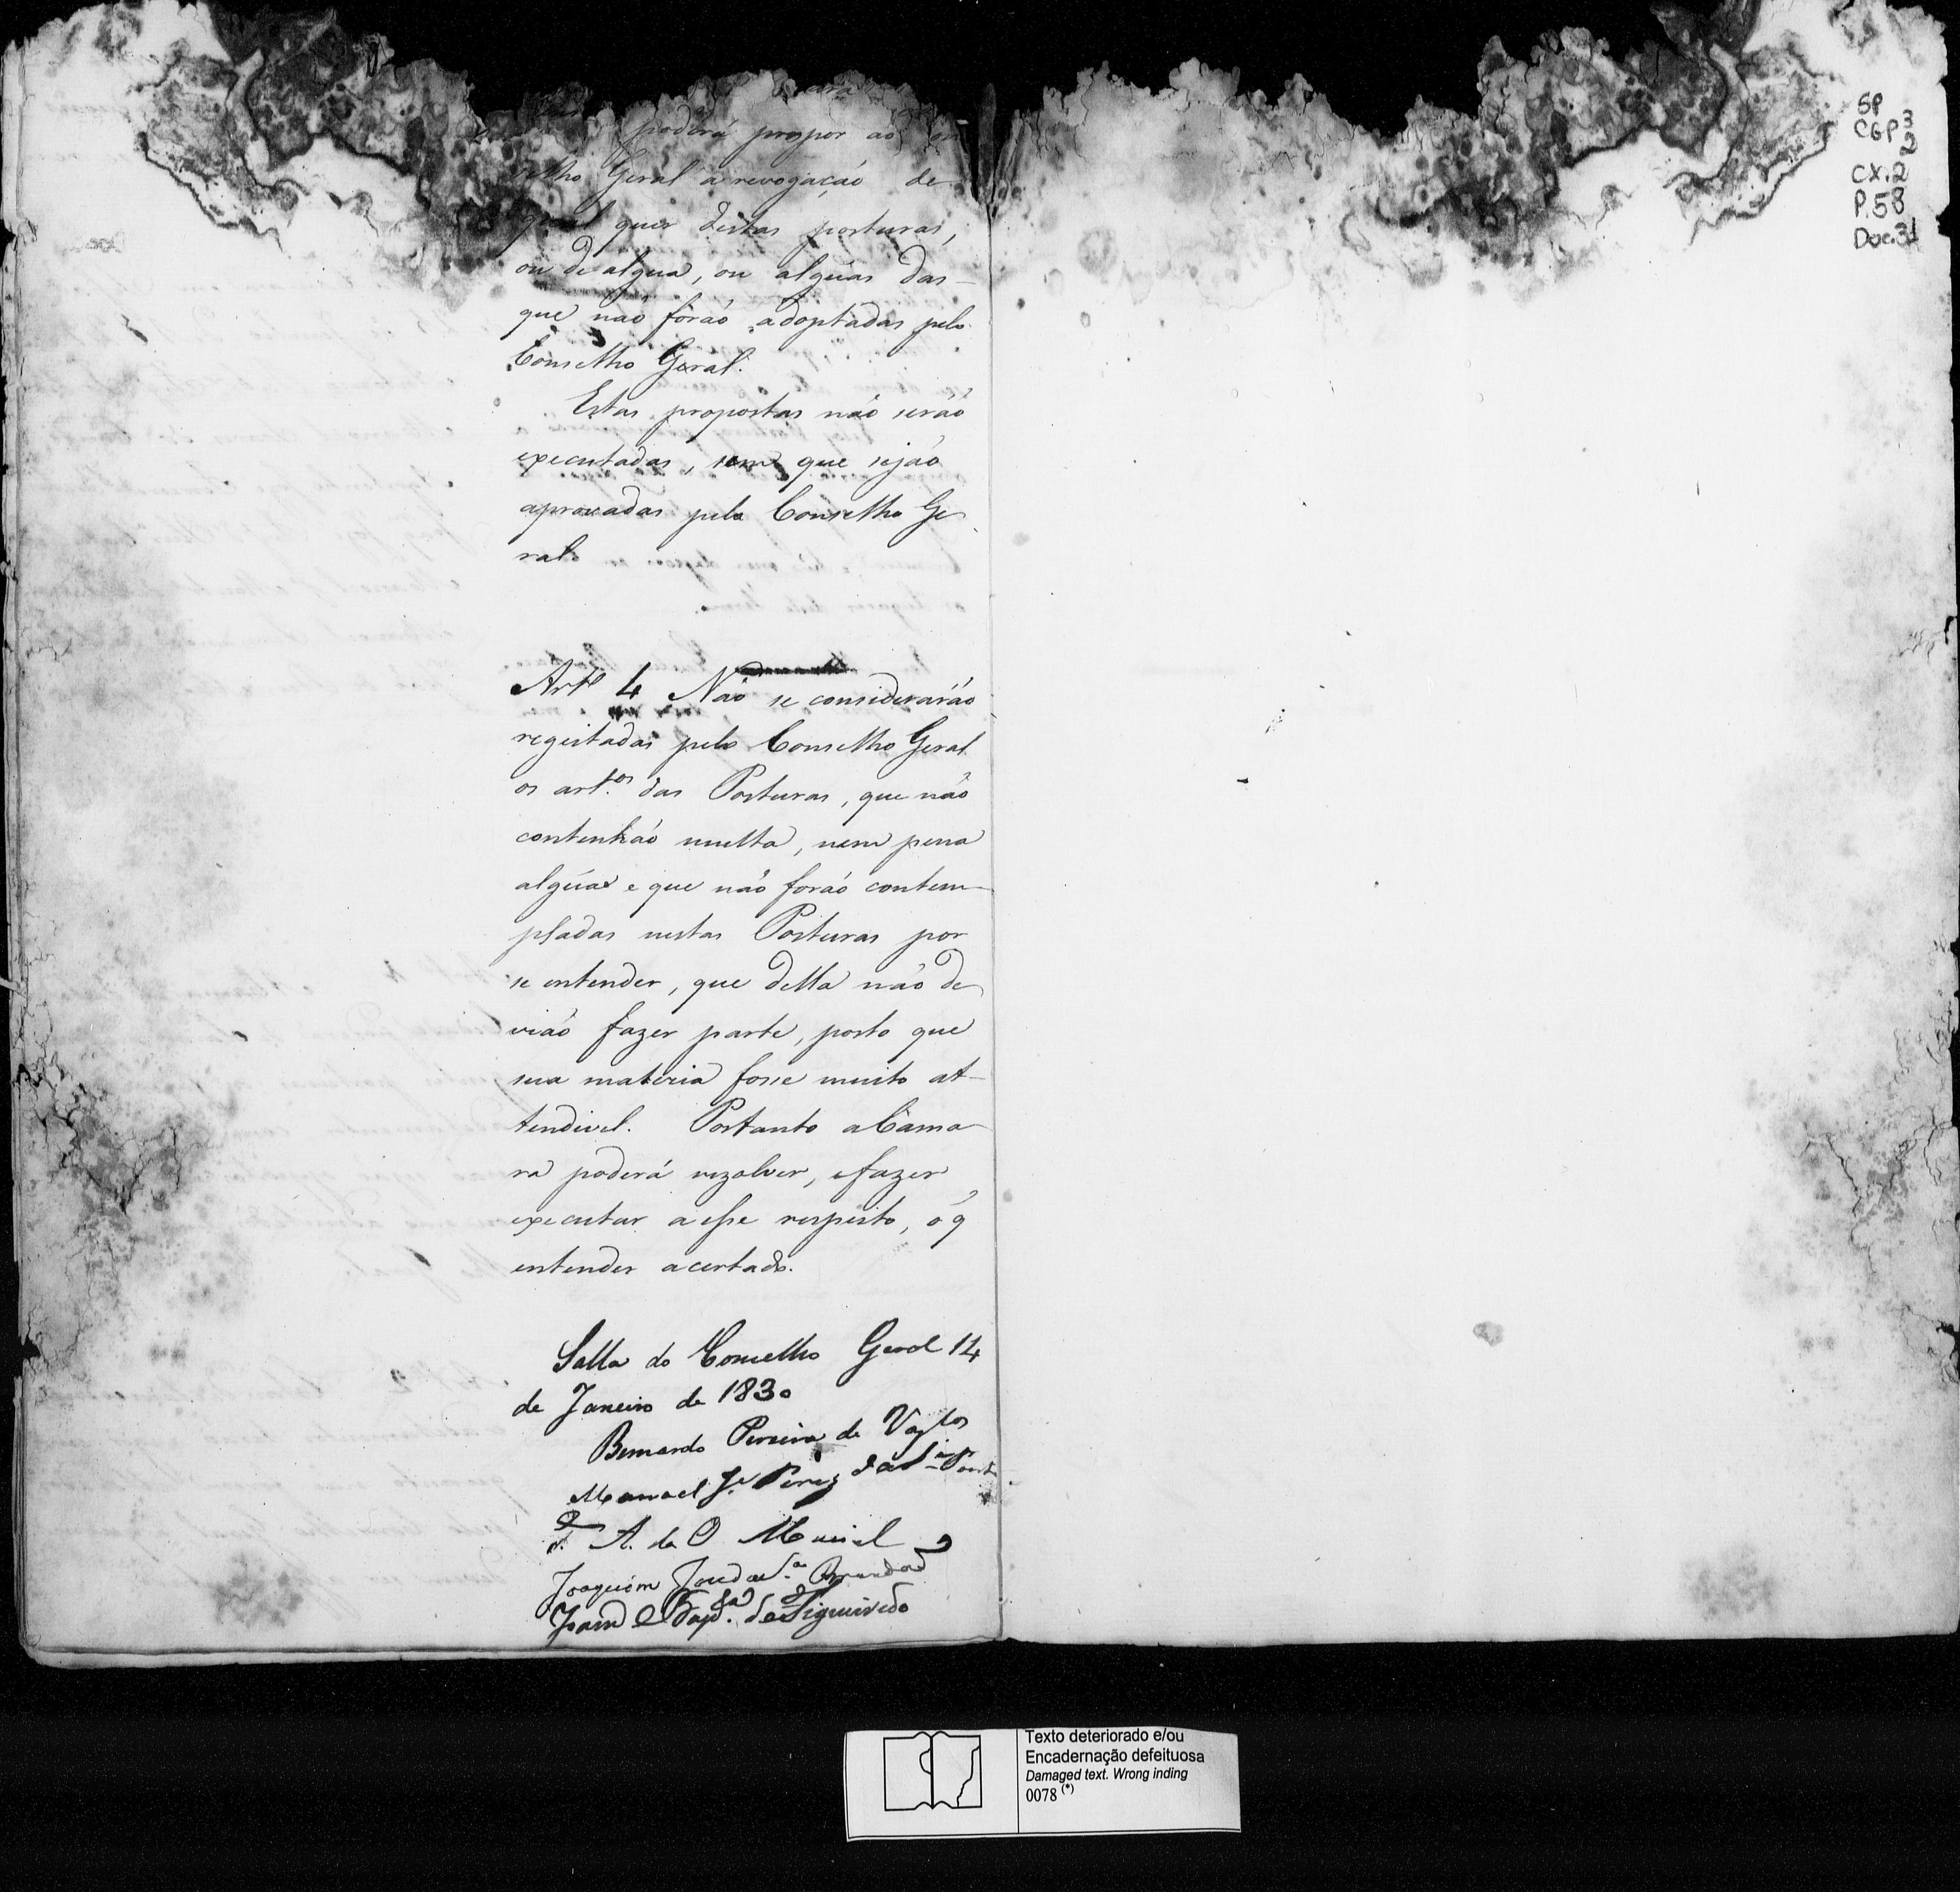 poderá propor ao
selho Geral a revogaçaõ de
qual quer destas posturas,
ou de algũa, ou algũas das
que naõ foraõ adoptadas pelo
Conselho Geral.
Estas propostas naõ seraõ
executadas, sem que sejaõ
aprovadas pelo Conselho Ge
ral.
Artº 4 Naõ se consideraráõ
regeitadas pelo Conselho Geral
os art.os das Posturas, que naõ
contenhaõ multa, nem pena
algũa e que naõ foraõ contem-
pladas nestas Posturas por
se entender, que della naõ de
viaõ fazer parte, posto que
sua materia fosse muito at-
tendivel. Portanto a Cama
ra poderá rezolver, e fazer
executar a esse respeito, o q
entender acertado.
Salla do Conselho Geral 14
de Janeiro de 1830
Bernardo Pereira de Vas.los
Manoel J.e Pires da S.a Pontes
A. de O Maciel
Joaquim José
Bap.ta de Figueiredo
SP
CGP 3
2
CX.2
P.58
Doc.31
Texto deteriorado e/ou
Encadernação defeituosa
Damaged text. Wrong inding
0078 (*)